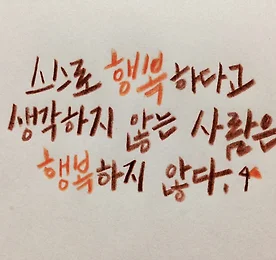 스스로 행복하다고
생각하지 않는 사람은
행복하지 않다.